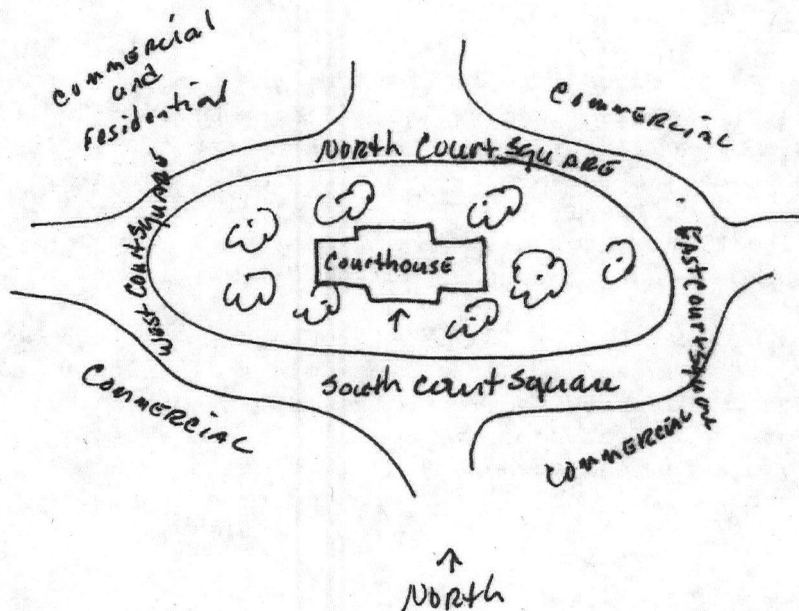 Commercial
and
residential
Commercial
North Court Square
West Court Square
Courthouse
East Court Square
South Court Square
Commercial
Commercial
North